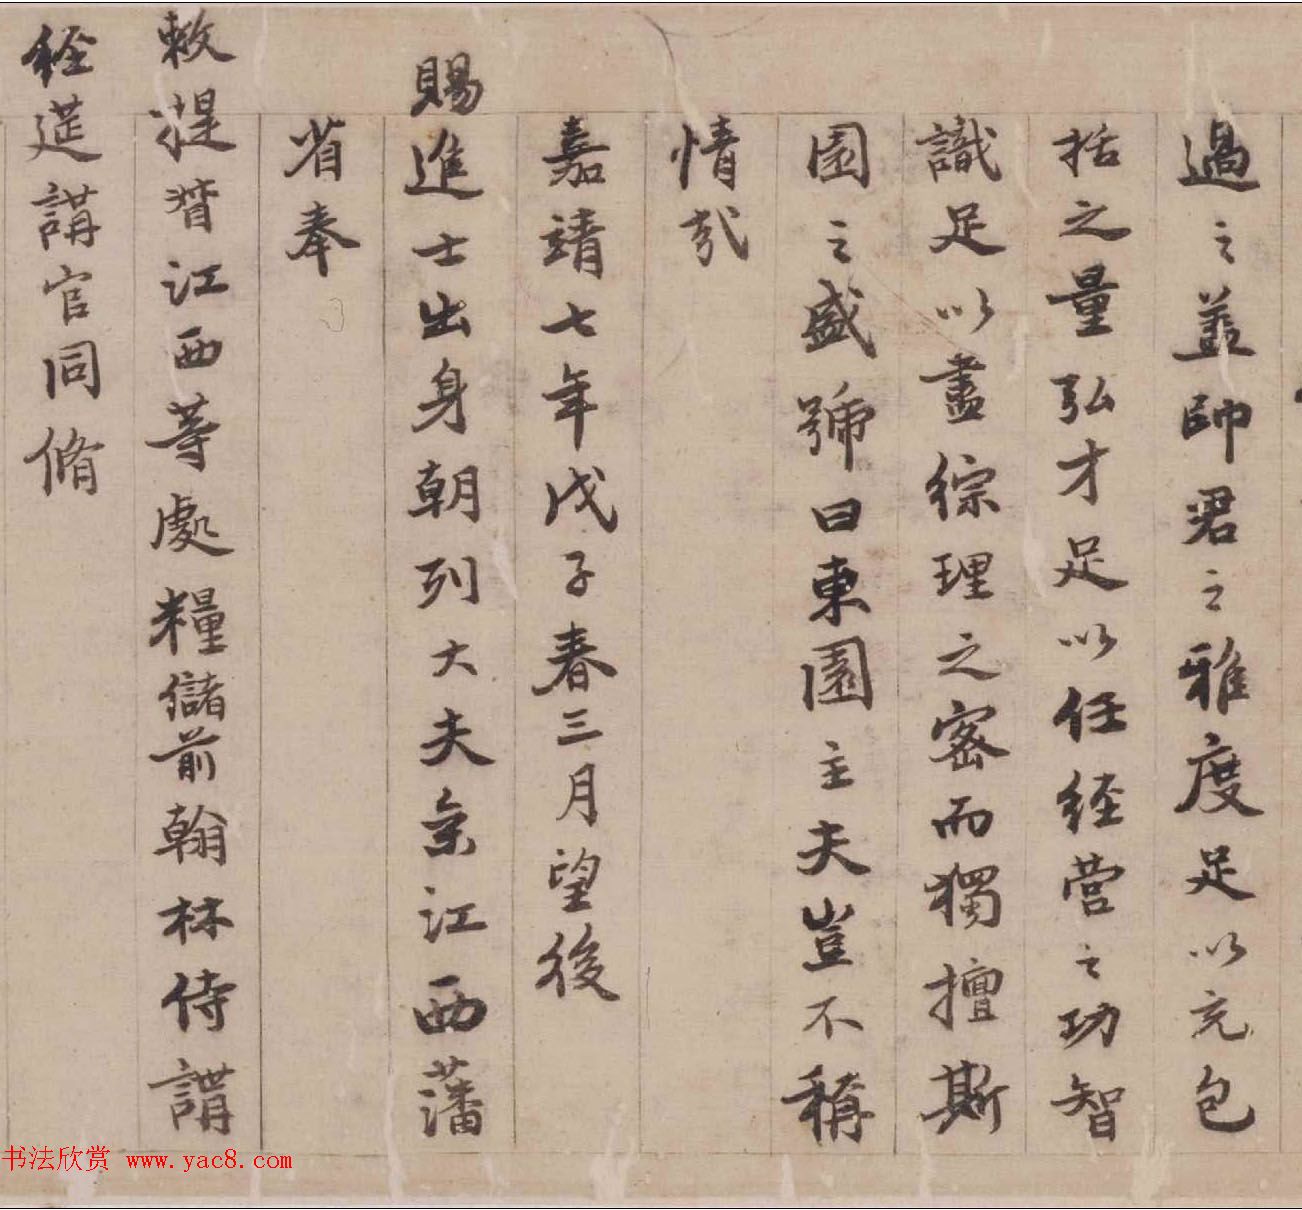 過之蓋帥君之雅度足以充包
括之量弘才足以任経營之功智
識足以盡綜理之密而獨擅斯
園之盛號曰東園主夫豈不稱
情哉
嘉靖七年戊子春三月望後
賜進士出身朝列大夫江西藩
省奉
敕提督江西等處糧儲前翰林侍講
経筵講官同脩
书法欣赏 www.yac8.com